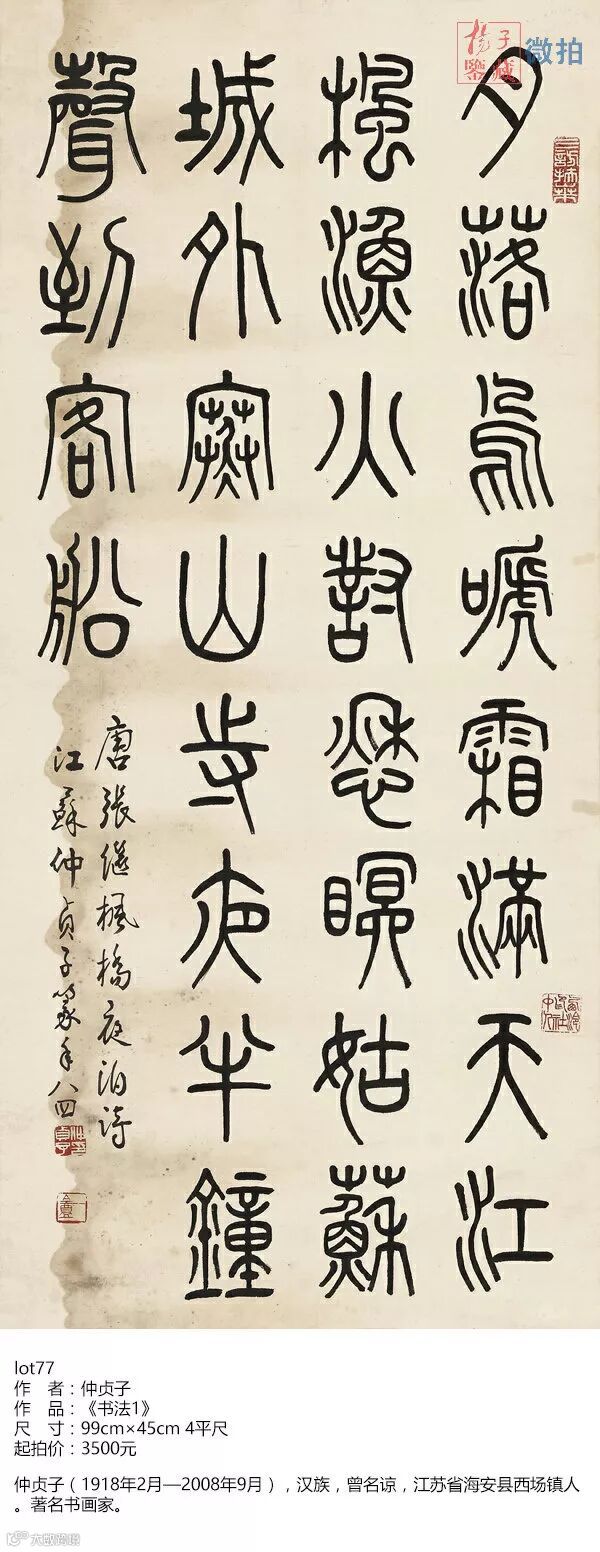 揚子
鑒藏
微拍
月落烏嗁霜滿天江
楓漁火對愁瞑姑蘇
城外寒山寺夜半鐘
聲到客船
唐張繼楓橋夜泊詩
江蘇仲貞子篆年八四
西泠印社中人
lot77
作 者：仲贞子
作 品：《书法1》
尺 寸：99cm×45cm 4平尺
起拍价：3500元
仲贞子（1918年2月—2008年9月），汉族，曾名谅，江苏省海安县西场镇人
。著名书画家。
大数跨境